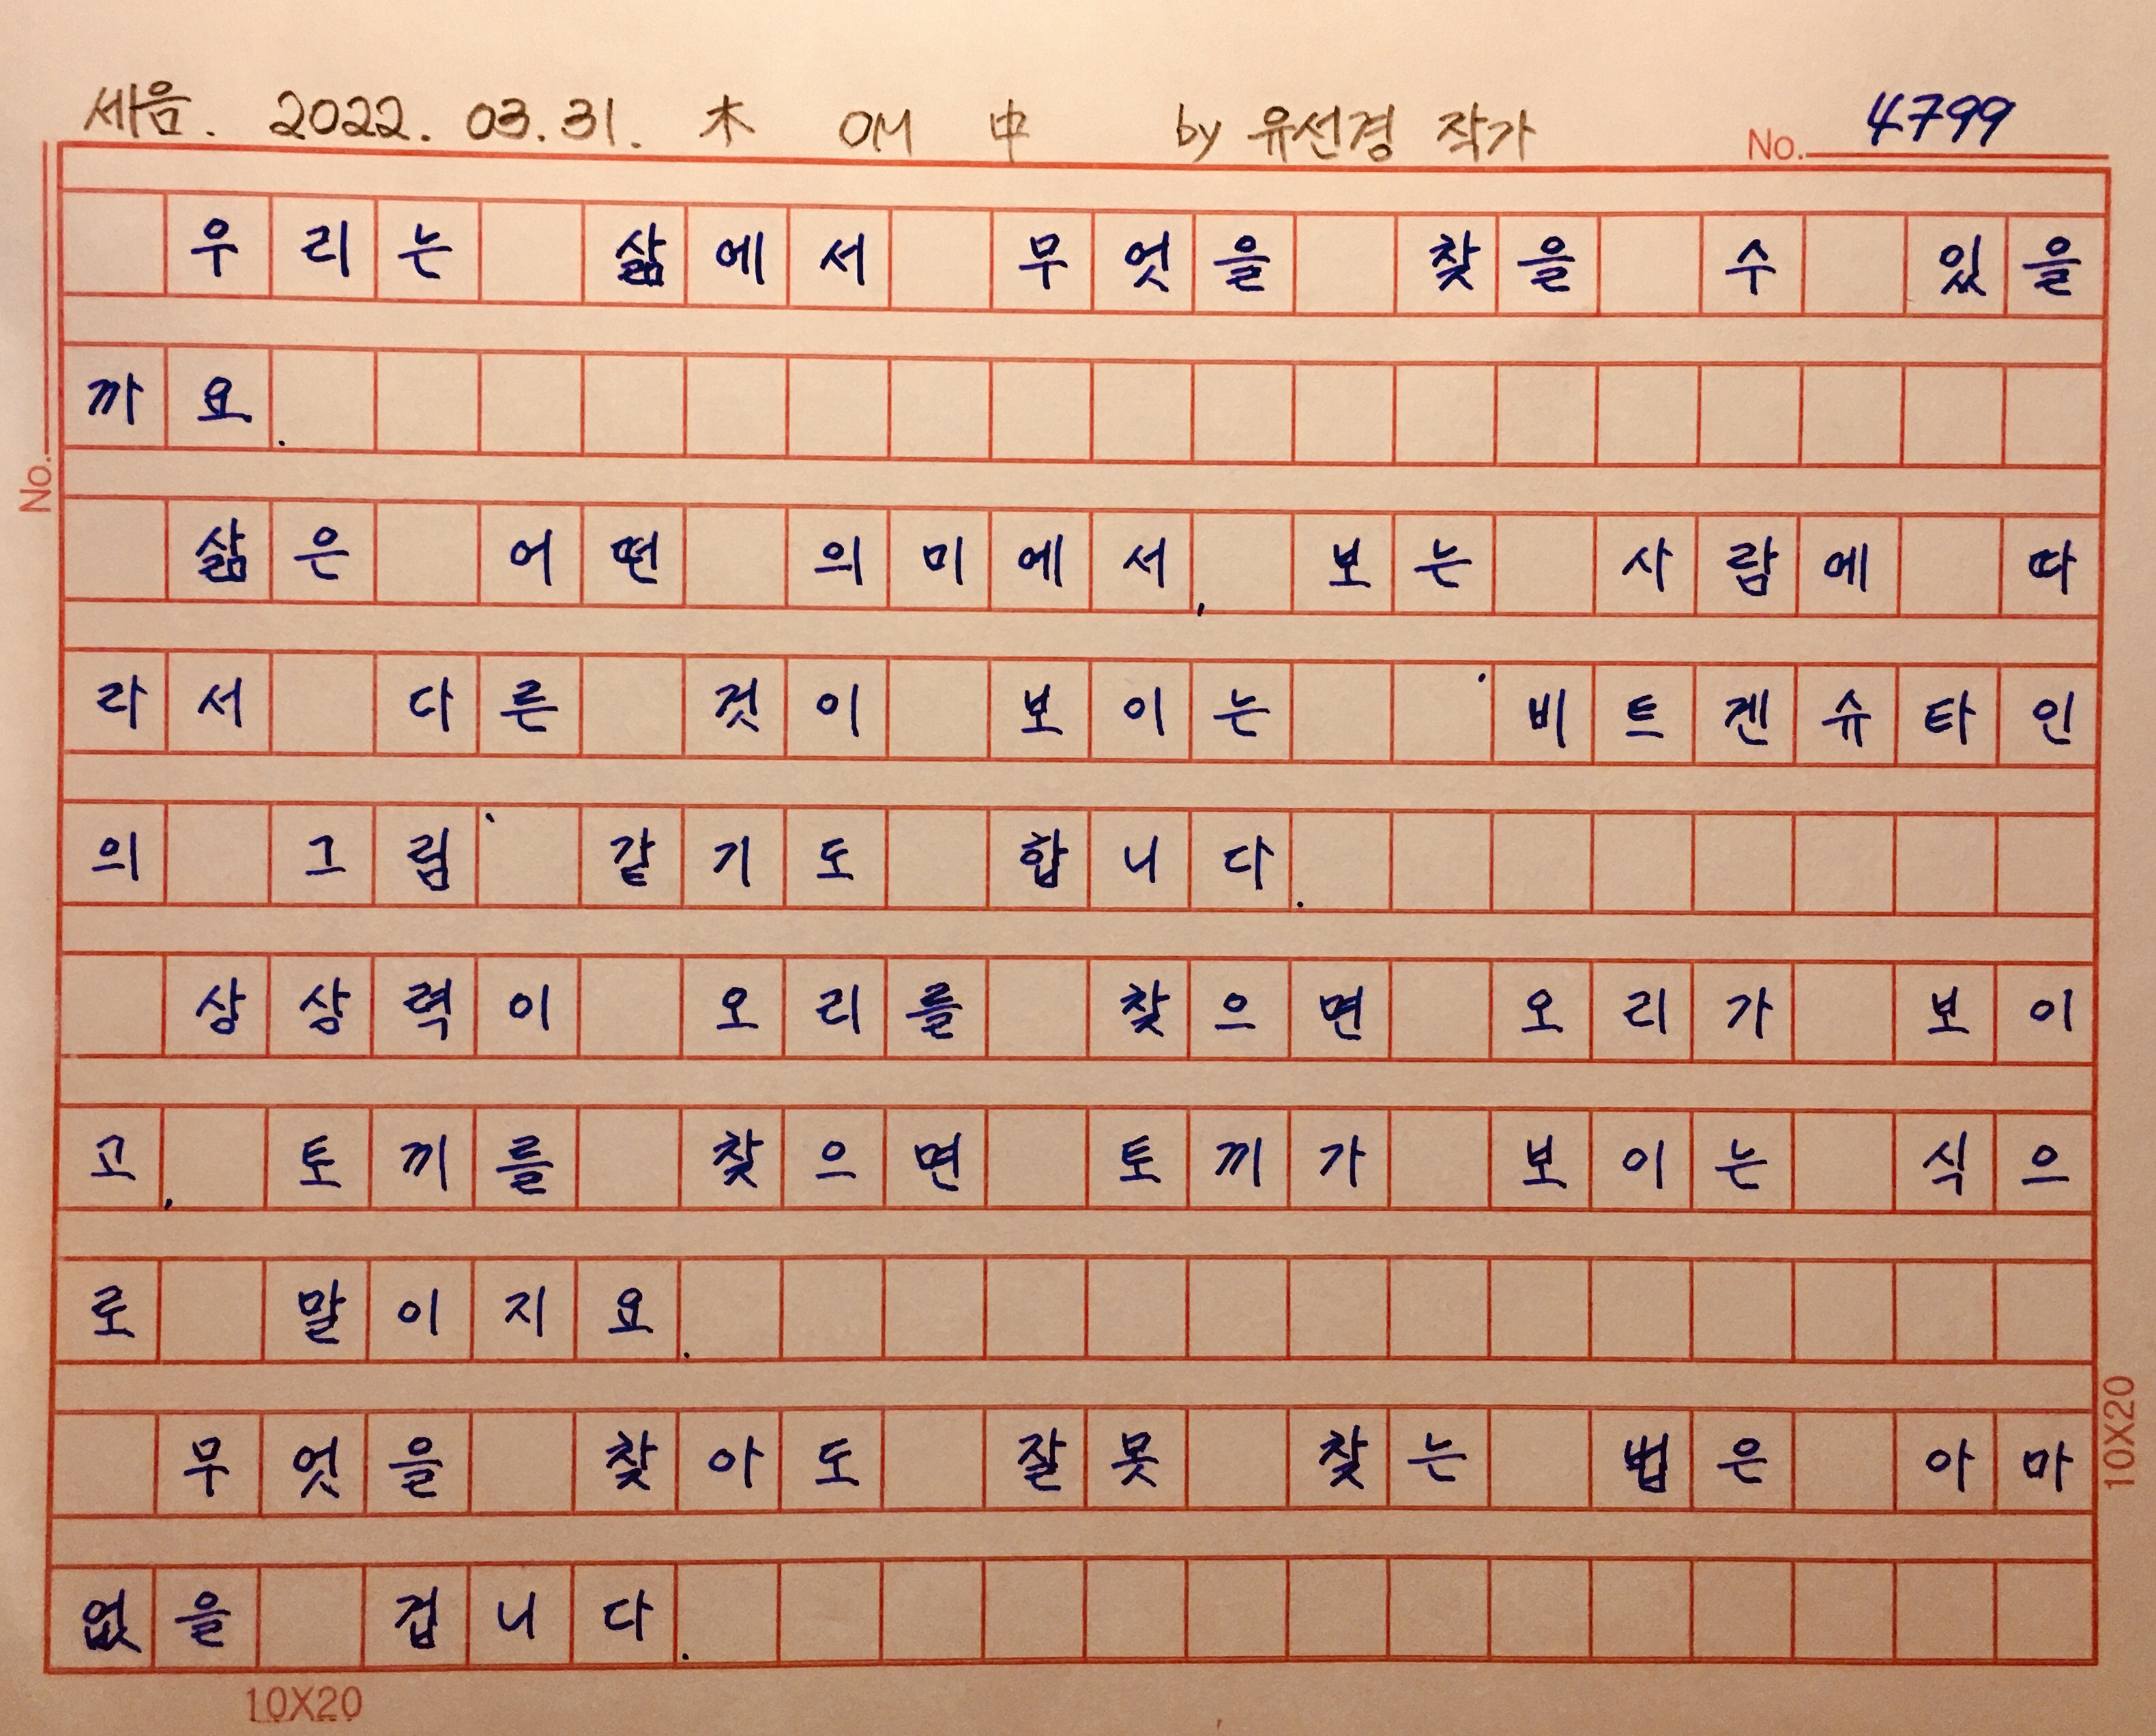 세음. 2022. 03. 31. 木 OM 中 by 유선경 작가 No. 4799
우리는 삶에서 무엇을 찾을 수 있을
까요.
삶은 어떤 의미에서, 보는 사람에 따
라서 다른 것이 보이는 '비트겐슈타인
의 그림' 같기도 합니다.
상상력이 오리를 찾으면 오리가 보이
고, 토끼를 찾으면 토끼가 보이는 식으
로 말이지요.
무엇을 찾아도 잘못 찾는 법은 아마
없을 겁니다.
No.
10X20
10X20